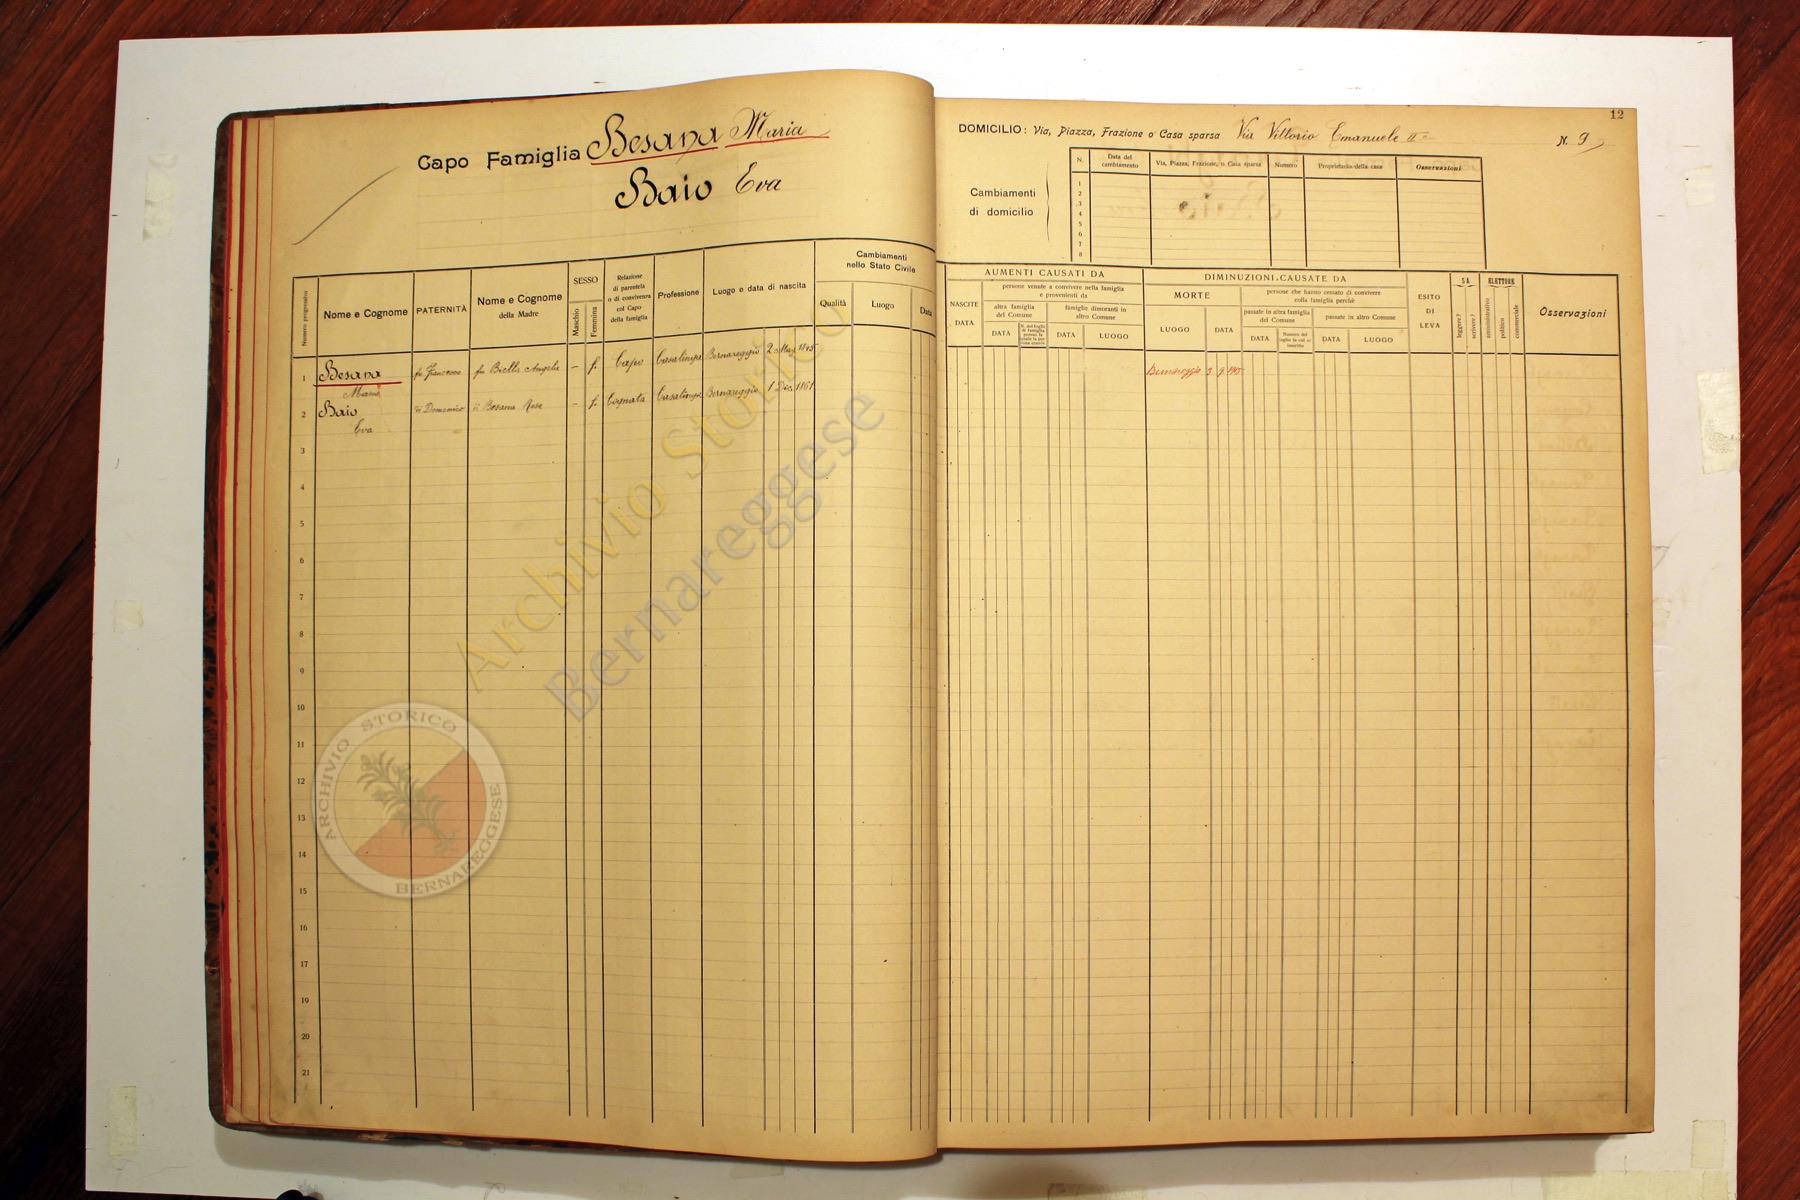 12
Capo Famiglia Besana Maria
Baio Eva
DOMICILIO: Via, Piazza, Frazione o Casa sparsa Via Vittorio Emanuele II N. 9
Cambiamenti
di domicilio
N. Data del cambiamento Via, Piazza, Frazione, o Casa sparsa Numero Proprietario della casa Osservazioni
1
2
3
4
5
6
7
8
Numero progressivo
Nome e Cognome
PATERNITÀ
Nome e Cognome
della Madre
SESSO
Maschio
Femmina
Relazione
di parentela
o di convivenza
col Capo
della famiglia
Professione
Luogo e data di nascita
Cambiamenti
nello Stato Civile
Qualità
Luogo
Data
AUMENTI CAUSATI DA
NASCITE
DATA
persone venute a convivere nella famiglia
e provenienti da
altra famiglia
del Comune
DATA
famiglie dimoranti in
altro Comune
DATA
LUOGO
DIMINUZIONI CAUSATE DA
MORTE
LUOGO
DATA
persone che hanno cessato di convivere
colla famiglia perchè
passate in altra famiglia
del Comune
DATA
passate in altro Comune
DATA
LUOGO
ESITO
DI
LEVA
SA
leggere?
scrivere?
ELETTORE
amministrativo
politico
commerciale
Osservazioni
1 Besana fu Francesco fu Biella Angela – f. Capo Casalinga Bernareggio 2 1845 Bernareggio 3 9
Maria
2 Baio di Domenico di Besana Rosa – f. Cognata Casalinga Bernareggio 1 Dic. 1861
Eva
3
4
5
6
7
8
9
10
11
12
13
14
15
16
17
18
19
20
21
Archivio Storico
Bernareggese
ARCHIVIO STORICO
BERNAREGGESE